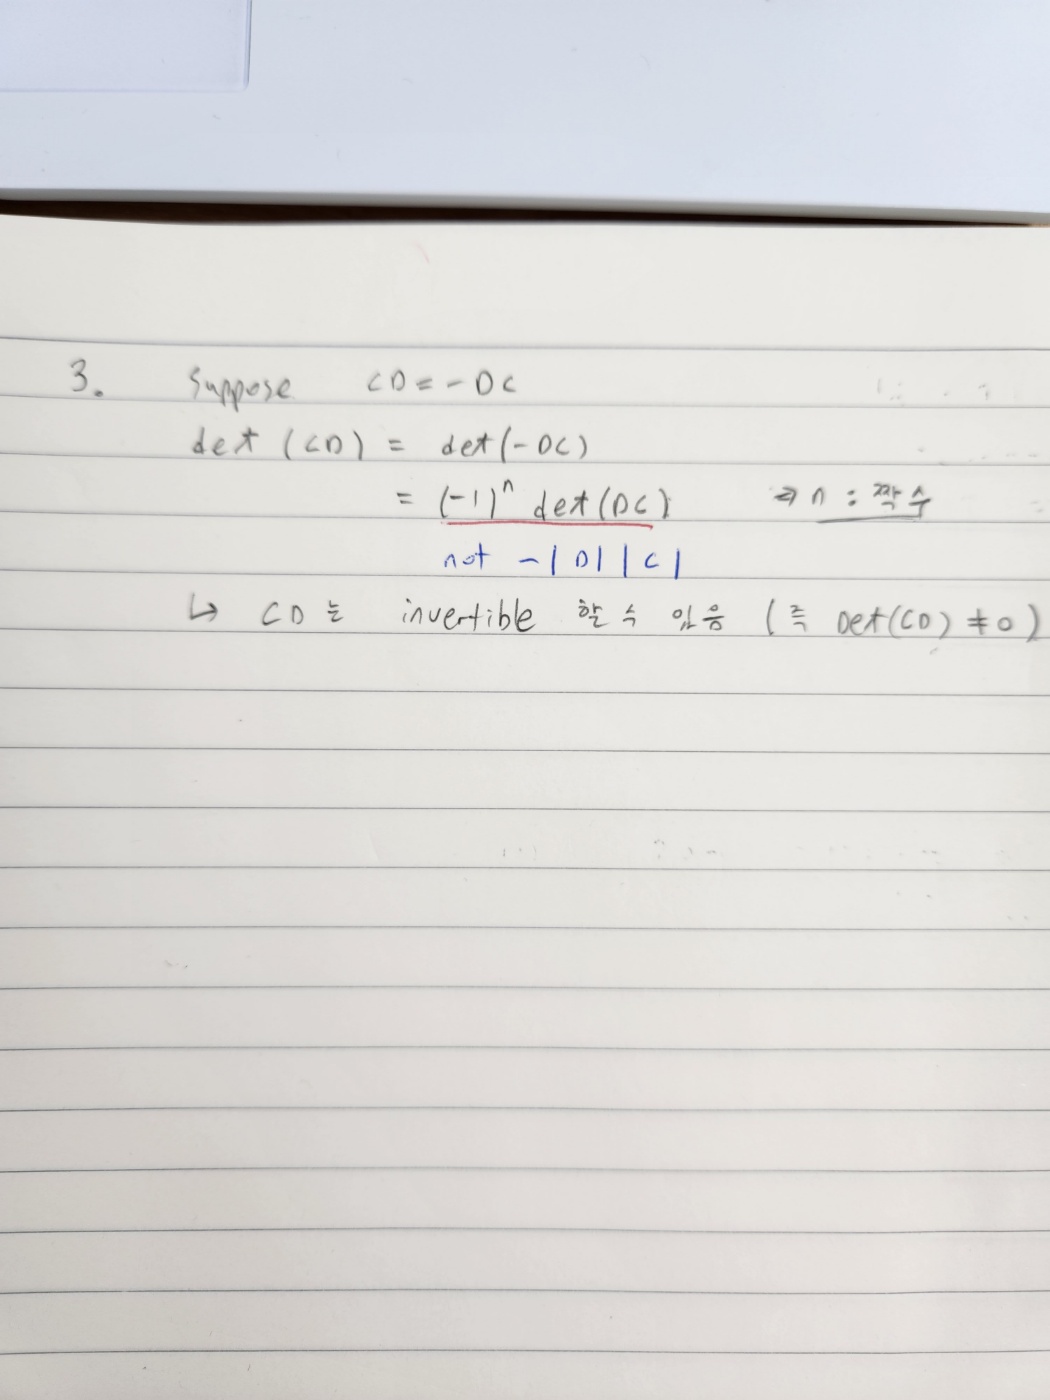 3. Suppose CD = - DC
det (CD) = det(- DC)
= (-1)ⁿ det(DC) ⇒ n : 짝수
not -|D||C|
↳ CD는 invertible 할 수 있음 (즉 Det(CD) ≠ 0)